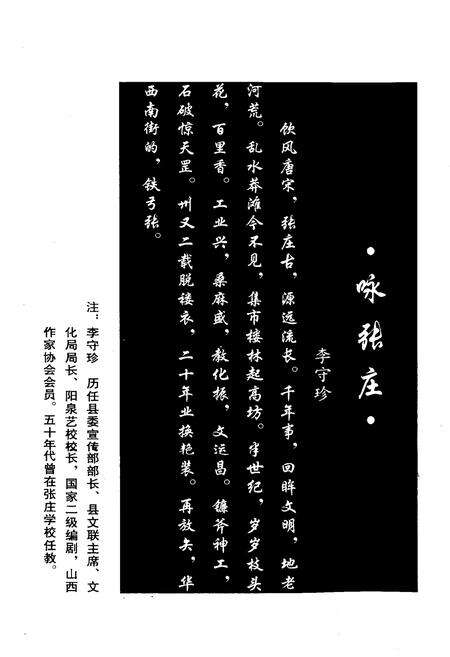 ·咏张庄·
李守珍
饮风唐宋，张庄古，源远流长。千年事，回眸文明，地老
河荒。乱水莽滩今不见，集市楼林起高坊。半世纪，岁岁枝头
花，百里香。工业兴，桑麻盛，教化振，文运昌。镰斧神工，
石破惊天罡。卅又二载脱褛衣，二十年业换艳装。再放矢，华
西南街的，铁弓张。
注：李守珍　历任县委宣传部部长、县文联主席、文
化局局长、阳泉艺校校长，国家二级编剧，山西
作家协会会员。五十年代曾在张庄学校任教。